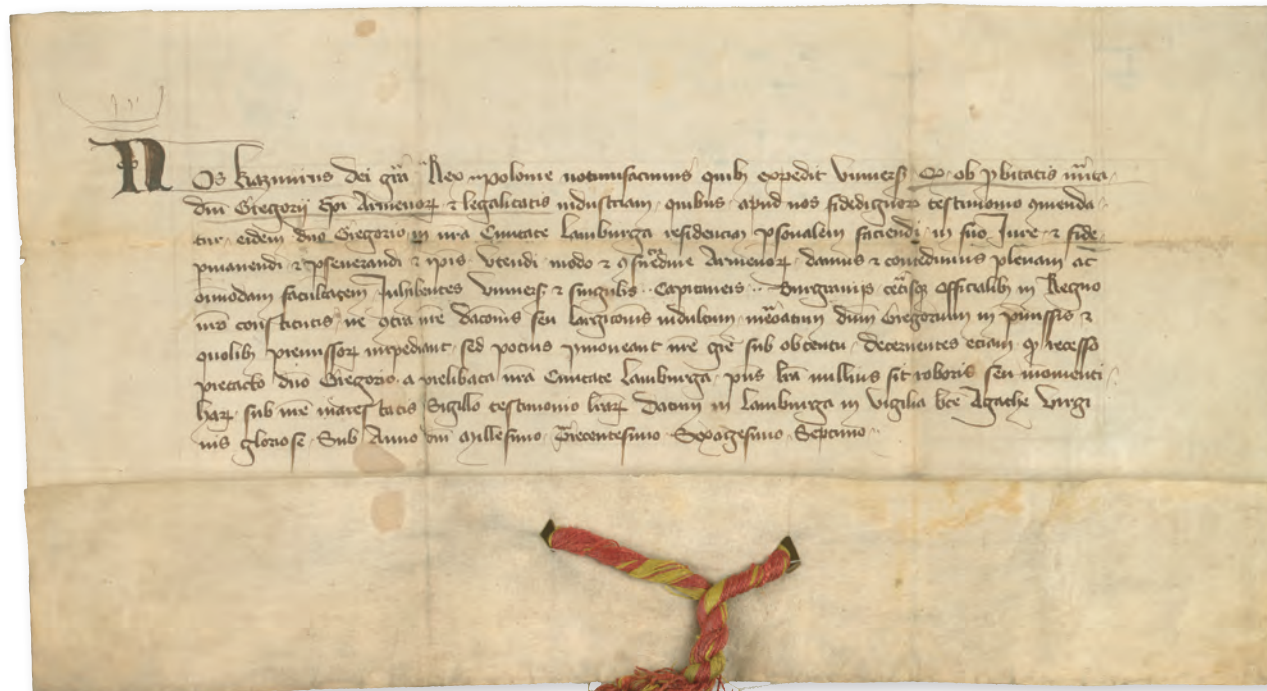 Nos Kazimirus dei gr̄a Rex Polonie notumfacimus quib₉ expedit Vniuers̄ Q ob ꝓbitatis m̄ita
dn̄i Gregorij Ep̄i Armenoꝝ ⁊ legalitatis industriam quibus apud nos fidedignoꝝ testimonio ꝯmenda
tur eidem dn̄o Gregorio in nr̄a Ciuitate Lamburga residenciam ꝑsonalem faciendi in suo Jure ⁊ fide
ꝑmanendi ⁊ ꝑseuerandi ⁊ ip̄is vtendi modo ⁊ ꝯsuetudine Armenoꝝ damus ⁊ concedimus plenam ac
om̄imodam facultatem Inhibentes Vniuers̄ ⁊ singulis Capitaneis Burgrauijs cet̄isqꝫ officialib₉ in Regno
nr̄o constitutis ne ꝯtra nr̄e dac̄onis seu largic̄onis indultum mēoratum dn̄m Gregorium in p̄missis ⁊
quolib₉ premissoꝝ impediant sed pocius ꝓmoueant nr̄e gr̄e sub obtentu decernentes eciam qꝫ recesso
pretacto dn̄o Gregorio a prelibata nr̄a Ciuitate Lamburga p̄ns lr̄a nullius sit roboris seu momenti
harꝝ sub nr̄e maiestatis Sigillo testimonio lr̄arꝝ Datum in Lamburga in vigilia bt̄e Agathe Virgi
nis gloriose Sub Anno dn̄i Millesimo Trecentesimo Sexagesimo Septimo